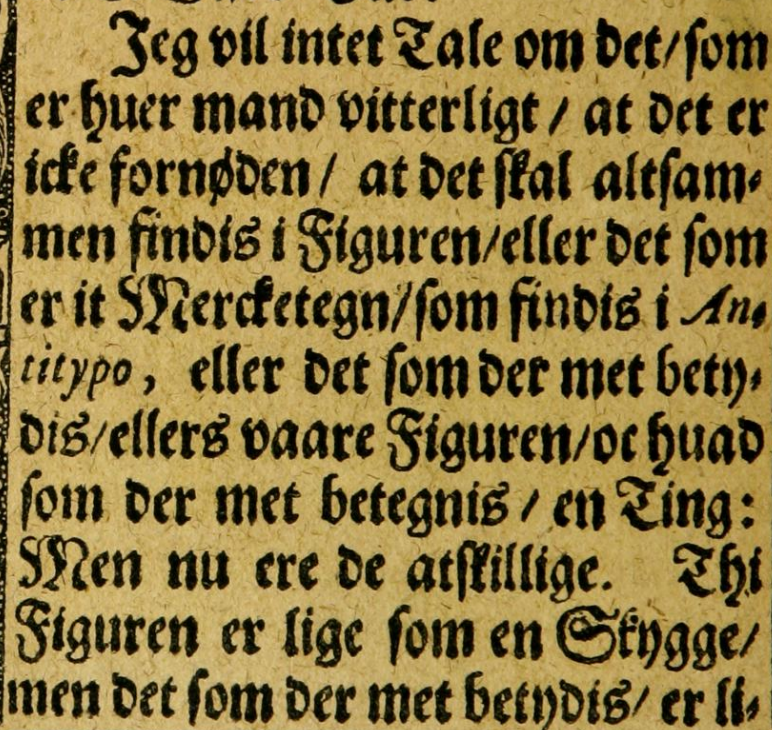 Jeg vil intet Tale om det/som
er huer mand vitterligt / at det er
icke fornøden / at det skal altsam-
men findis i Figuren/eller det som
er it Mercketegn/som findis i An-
titypo, eller det som der met bety-
dis/ellers vaare Figuren/oc huad
som der met betegnis / en Ting:
Men nu ere de atskillige. Thi
Figuren er lige som en Skygge/
men det som der met betydis/ er li-